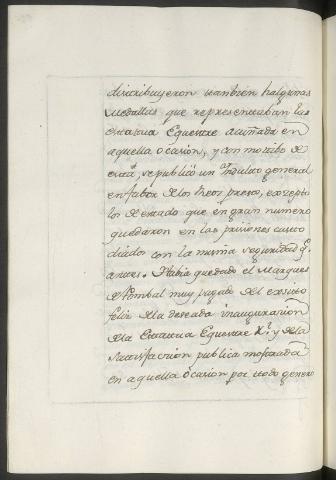 distribuyeron tambien halgunas
Medallas que representaban la
estatua Equestre acuñada en
aquella ocasion, y con motibo de
esta, se publicó un Yndulto general
en fabor de los Reos presos, excepto
los de estado que en gran numero
quedaron en las prisiones custo
diados con la misma seguridad q.
antes. Habia quedado el Marques
de Pombal muy pagado del exsito
feliz de la deseada inauguracion
de la Estatua Equestre Rl. y de la
Satisfaccion publica mostrada
en aquella ocasion por todo genero